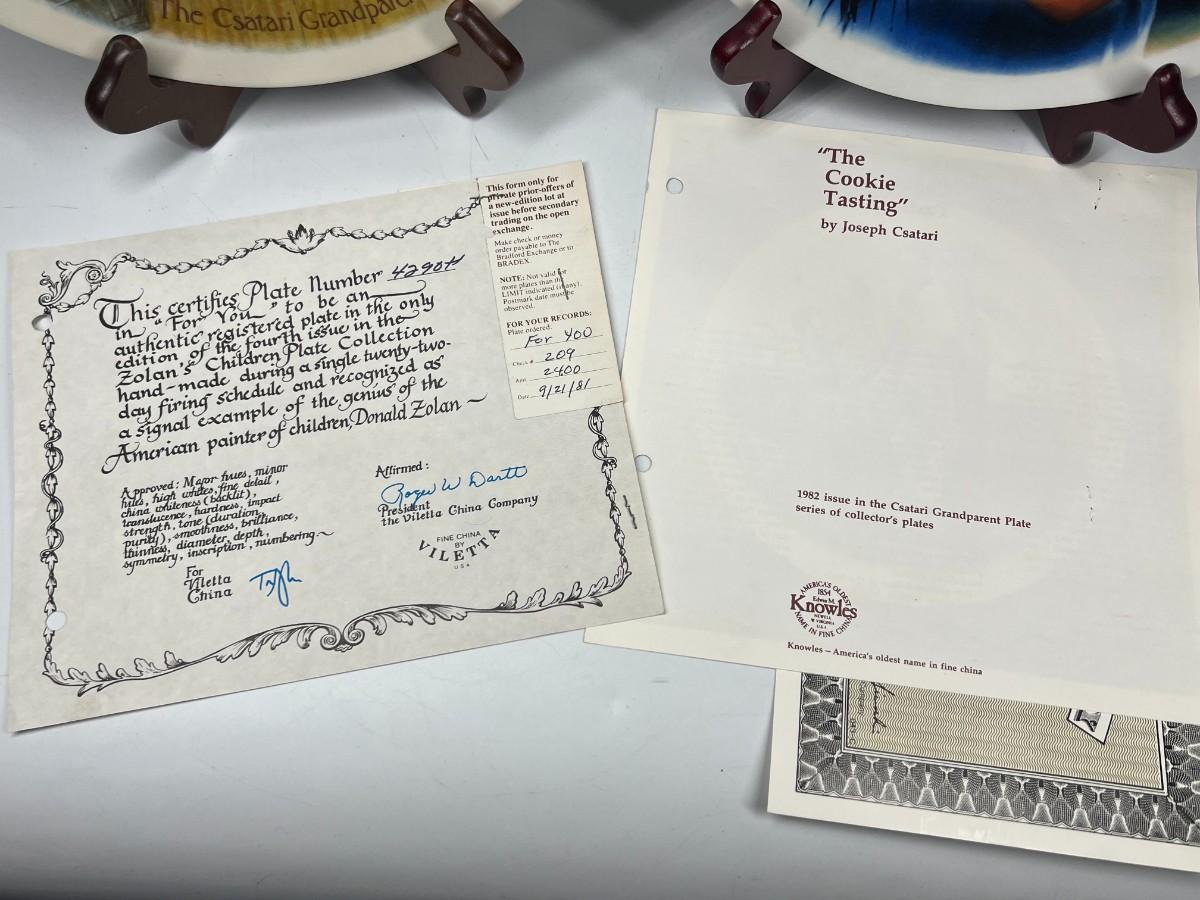 The Csatari Grandparent
This certifies Plate Number 4290H
in "For You" to be an
authentic registered plate in the only
edition of the fourth issue in the
Zolan's Children Plate Collection
hand-made during a single twenty-two-
day firing schedule and recognized as
a signal example of the genius of the
American painter of children, Donald Zolan
Approved: Major hues, minor
hues, high whites, fine detail,
china whiteness (backlit),
translucence, hardness, impact
strength, tone (duration,
purity), smoothness, brilliance,
thinness, diameter, depth,
symmetry, inscription, numbering.
For
Viletta
China
Affirmed:
Roger W Dartt
President
the Viletta China Company
FINE CHINA
BY
VILETTA
USA
This form only for
private prior-offers of
a new-edition lot at
issue before secondary
trading on the open
exchange.
Make check or money
order payable to The
Bradford Exchange or to
BRADEX.
NOTE: Not valid for
more plates than the
LIMIT indicated (if any).
Postmark date must be
observed.
FOR YOUR RECORDS:
Plate ordered:
For YOO
Check # 209
Amt. 2400
Date 9/21/81
"The
Cookie
Tasting"
by Joseph Csatari
1982 issue in the Csatari Grandparent Plate
series of collector's plates
AMERICA'S OLDEST
1854
Edwin M.
Knowles
NEWELL
W. VIRGINIA
U.S.A.
NAME IN FINE CHINA
Knowles – America's oldest name in fine china